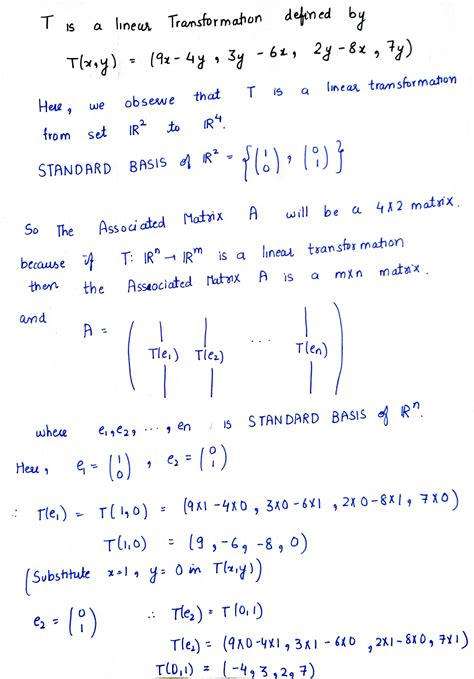 T is a linear Transformation defined by
T(x,y) = (9x-4y, 3y-6x, 2y-8x, 7y)
Here, we observe that T is a linear transformation
from set ℝ² to ℝ⁴.
STANDARD BASIS of ℝ² = {(1 0), (0 1)}
So The Associated Matrix A will be a 4x2 matrix.
because if T: ℝⁿ → ℝᵐ is a linear transformation
then the Associated Matrix A is a mxn matrix.
and A = ( T(e₁) T(e₂) ... T(en) )
where e₁,e₂, ..., en is STANDARD BASIS of ℝⁿ.
Here, e₁ = (1 0), e₂ = (0 1)
∴ T(e₁) = T(1,0) = (9x1-4x0, 3x0-6x1, 2x0-8x1, 7x0)
T(1,0) = (9, -6, -8, 0)
(Substitute x=1, y=0 in T(x,y))
e₂ = (0 1) ∴ T(e₂) = T(0,1)
T(e₂) = (9x0-4x1, 3x1-6x0, 2x1-8x0, 7x1)
T(0,1) = (-4, 3, 2, 7)